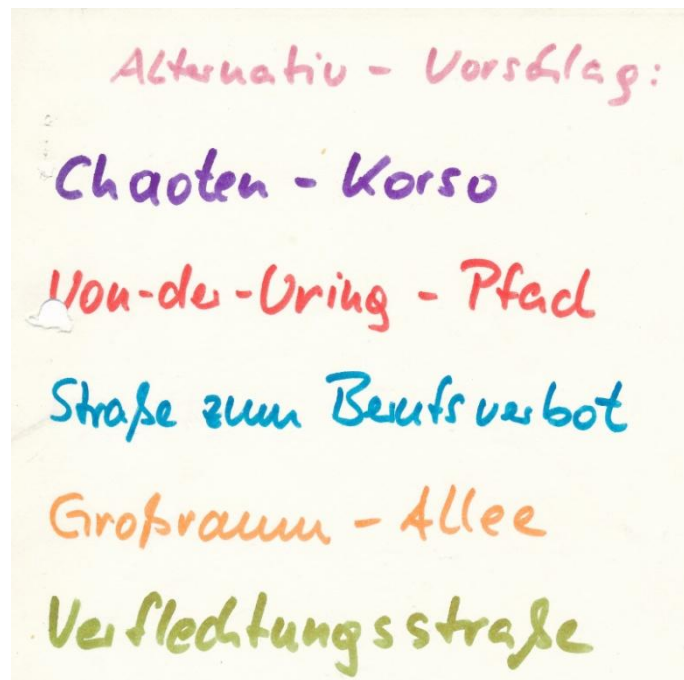 Alternativ - Vorschlag:
Chaoten - Korso
Von-der-Vring - Pfad
Straße zum Berufsverbot
Großraum - Allee
Verflechtungsstraße